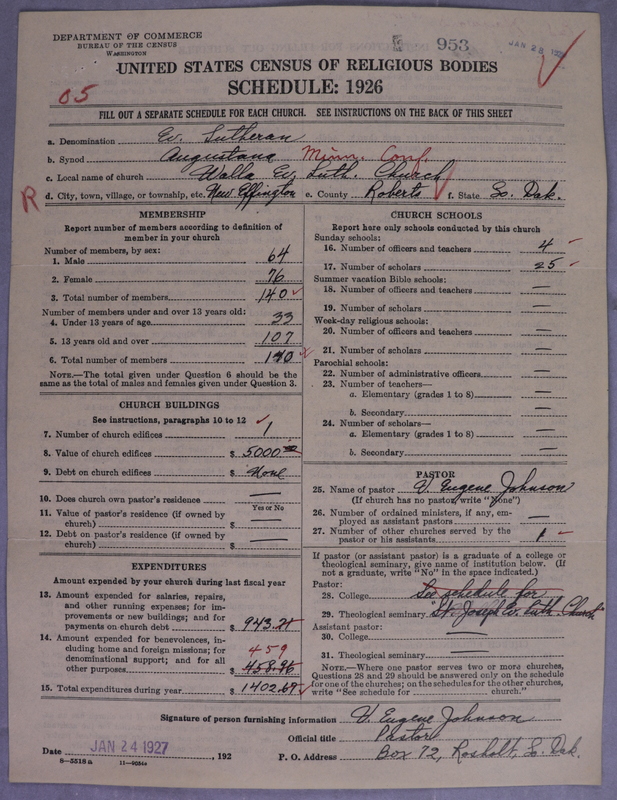 DEPARTMENT OF COMMERCE
BUREAU OF THE CENSUS
WASHINGTON
953
JAN 28
UNITED STATES CENSUS OF RELIGIOUS BODIES
SCHEDULE: 1926
05
FILL OUT A SEPARATE SCHEDULE FOR EACH CHURCH. SEE INSTRUCTIONS ON THE BACK OF THIS SHEET
a. Denomination Ev. Lutheran
b. Synod Augustana Minn. Conf.
c. Local name of church Walla Ev. Luth. Church
R
d. City, town, village, or township, etc. New Effington e. County Roberts f. State So. Dak.
MEMBERSHIP
Report number of members according to definition of member in your church
Number of members, by sex:
1. Male 64
2. Female 76
3. Total number of members 140
Number of members under and over 13 years old:
4. Under 13 years of age 33
5. 13 years old and over 107
6. Total number of members 140
NOTE.—The total given under Question 6 should be the
same as the total of males and females given under Question 3.
CHURCH BUILDINGS
See instructions, paragraphs 10 to 12
7. Number of church edifices 1
8. Value of church edifices $ 5000
9. Debt on church edifices $ None
10. Does church own pastor's residence —
Yes or No
11. Value of pastor's residence (if owned by
church) $ —
12. Debt on pastor's residence (if owned by
church) $ —
EXPENDITURES
Amount expended by your church during last fiscal year
13. Amount expended for salaries, repairs,
and other running expenses; for im-
provements or new buildings; and for
payments on church debt $ 943.
14. Amount expended for benevolences, in-
cluding home and foreign missions; for 459
denominational support; and for all
other purposes $ 458.96
15. Total expenditures during year $ 1402.67
CHURCH SCHOOLS
Report here only schools conducted by this church
Sunday schools:
16. Number of officers and teachers 4
17. Number of scholars 25
Summer vacation Bible schools:
18. Number of officers and teachers —
19. Number of scholars —
Week-day religious schools:
20. Number of officers and teachers —
21. Number of scholars —
Parochial schools:
22. Number of administrative officers —
23. Number of teachers—
a. Elementary (grades 1 to 8) —
b. Secondary —
24. Number of scholars—
a. Elementary (grades 1 to 8) —
b. Secondary —
PASTOR
25. Name of pastor V. Eugene Johnson
(If church has no pastor, write "None")
26. Number of ordained ministers, if any, em-
ployed as assistant pastors —
27. Number of other churches served by the
pastor or his assistants 1
If pastor (or assistant pastor) is a graduate of a college or
theological seminary, give name of institution below. (If
not a graduate, write "No" in the space indicated.)
Pastor:
28. College See schedule for
29. Theological seminary "St. Joseph Ev. Luth. Church"
Assistant pastor:
30. College —
31. Theological seminary —
NOTE.—Where one pastor serves two or more churches,
Questions 28 and 29 should be answered only on the schedule
for one of the churches; on the schedules for the other churches,
write "See schedule for church."
Signature of person furnishing information V. Eugene Johnson
Official title Pastor
Date JAN 24 1927, 192 P. O. Address Box 72, Rosholt, So. Dak.
8—5518a 11—9034a